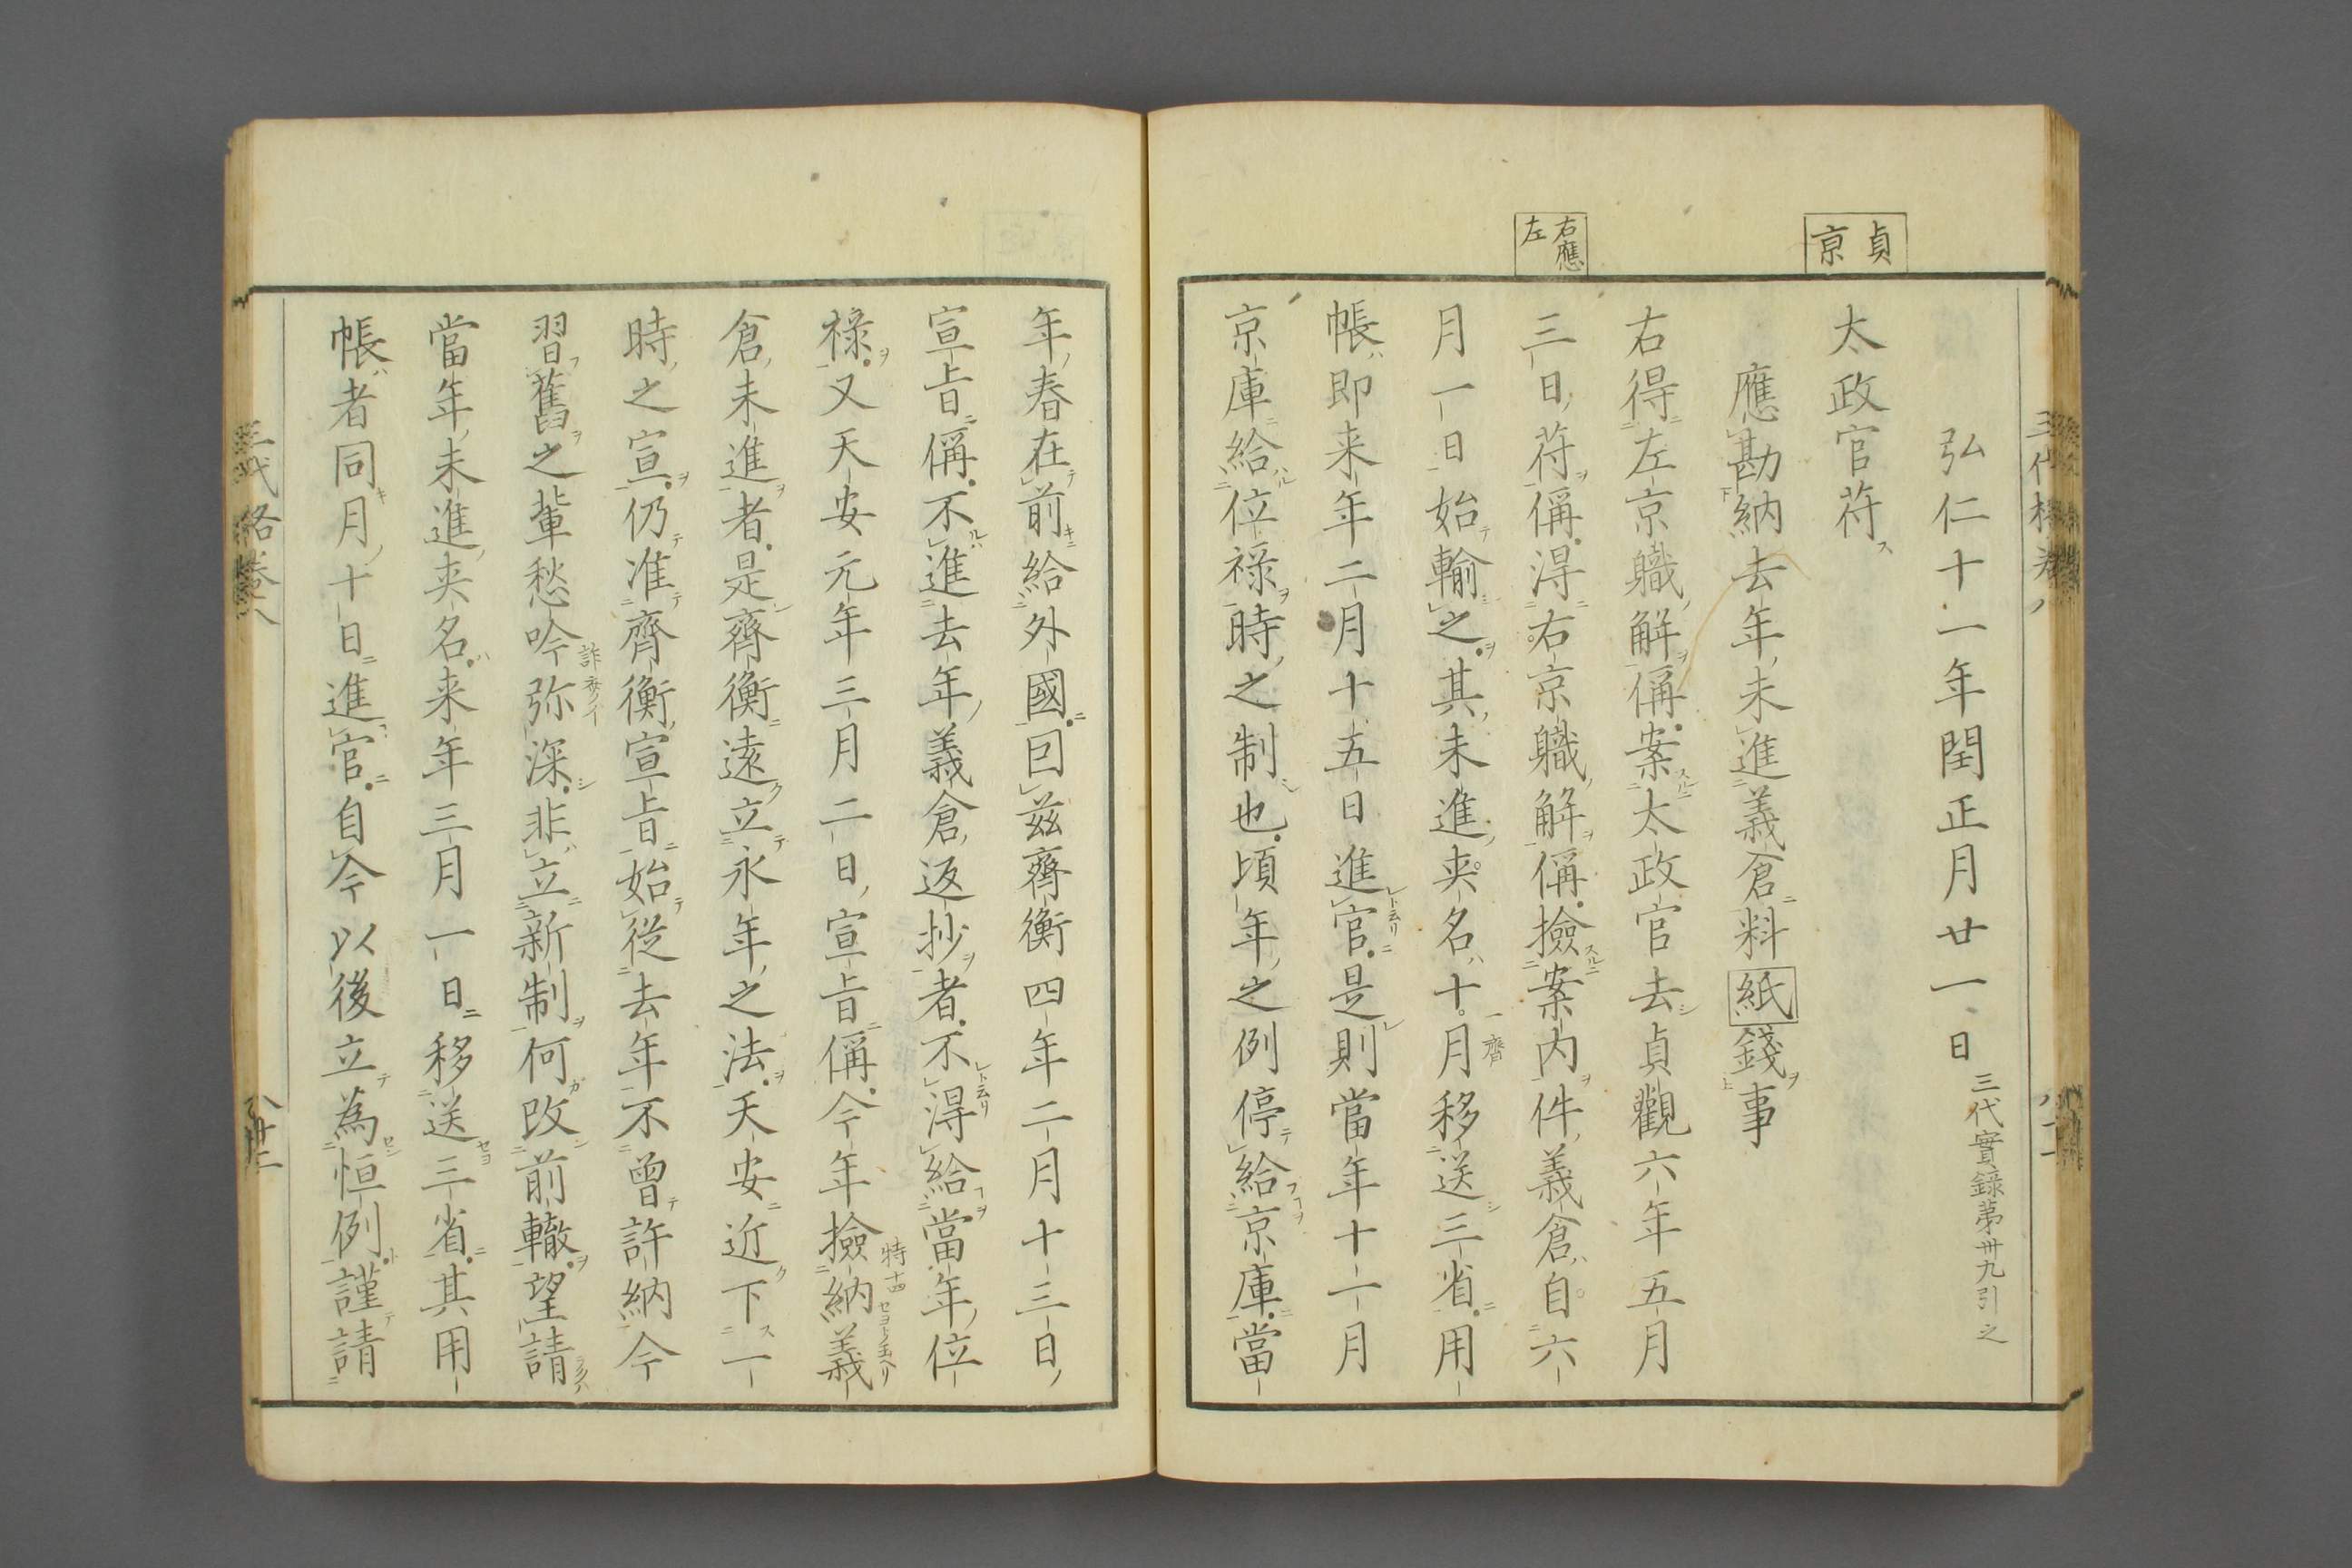 貞
京
右應
左
弘仁十一年閏正月廿一日 三代實録苐卅九引之
太政官符
應勘納去年未進義倉料紙錢事
右得左京職解偁案太政官去貞觀六年五月
三日符偁淂右京職解偁撿案内件義倉自六
月一日始輸之其未進夾名十月移送三省用
帳即来年二月十五日進官是則當年十一月
京庫給位祿時之制也頃年之例停給京庫當
年春在前給外國囙茲齊衡四年二月十三日
宣旨偁不進去年義倉返抄者不淂給當年位
祿又天安元年三月二日宣旨偁今年撿納義
倉未進者是齊衡遠立永年之法天安近下一
時之宣仍准齊衡宣旨始從去年不曾許納今
習舊之輩愁吟弥深非立新制何改前轍望請
當年未進夾名来年三月一日移送三省其用
帳者同月十日進官自今以後立為恒例謹請